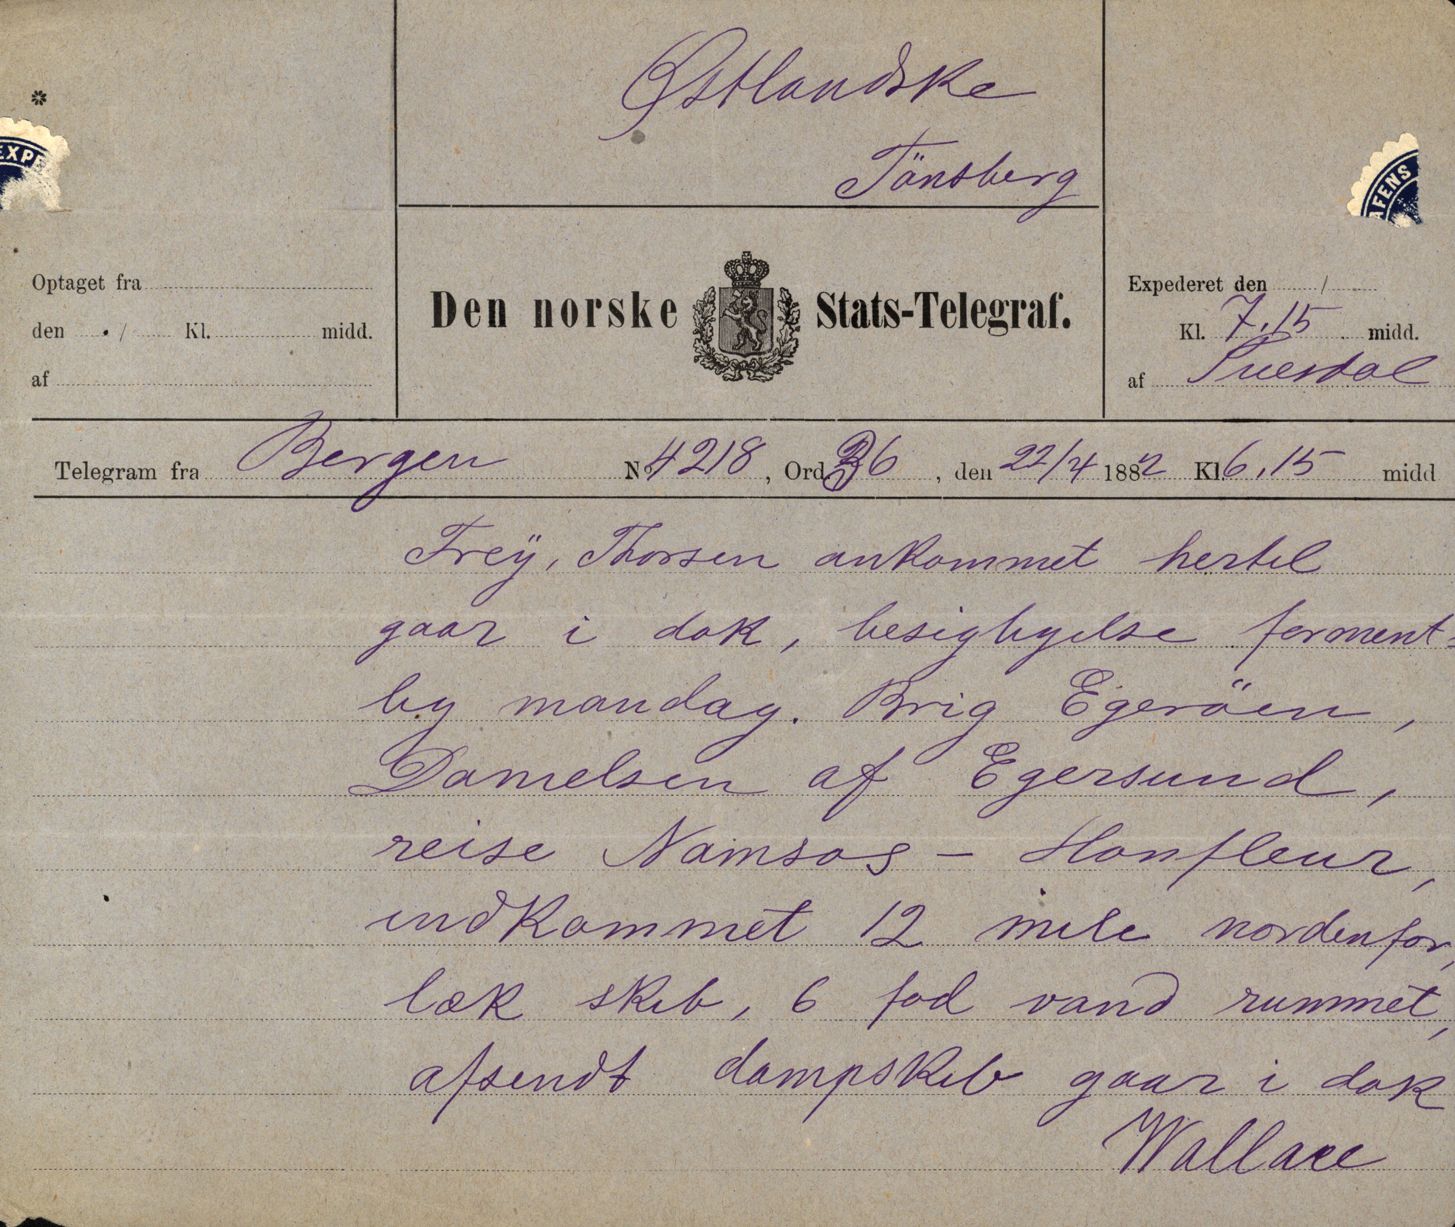 Østlandske
Tönsberg
*
EXPE
AFENS
Optaget fra
den / Kl. midd.
af
Den norske Stats-Telegraf.
Expederet den /
Kl. 7.15 midd.
af
Telegram fra Bergen No 4218, Ord 36, den 22/4 1882 Kl. 6.15 midd
Frey, Thorsen ankommet hertil
gaar i dok, besigtigelse forment-
lig mandag. Brig Egeröen,
Danielsen af Egersund,
reise Namsos - Honfleur,
indkommet 12 mile nordenfor,
læk skib, 6 fod vand rummet,
afsendt dampskib gaar i dok
Wallace